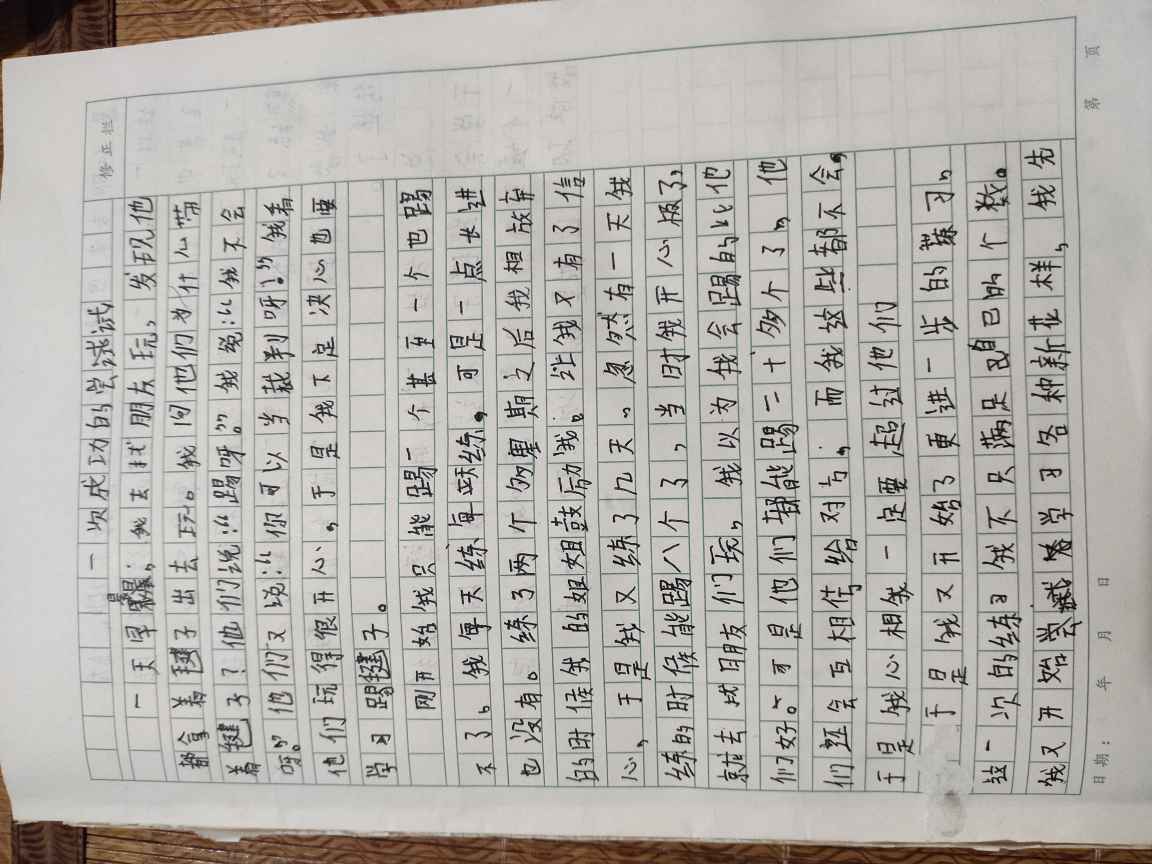 修正栏
一次成功的尝试
一天早晨，我去找朋友玩，发现他
都拿着毽子出去玩。我问他们为什心带
着毽子？他们说：“踢呀。”我说：“我不会
呀。”他们又说：“你可以当裁判呀！”我看
他们玩得很开心。于是我下定决心也要
学习踢毽子。
刚开始我只能踢一个甚至一个也踢
不了，我每天练每天练。可是一点长进
也没有。练了两个多星期之后我相放弃
的时候我的姐姐鼓励我。让我又有了信
心，于是我又练了几天。忽然有一天我
练的时候能踢八个了，当时我开心极了，
就去找朋友们玩，我以为我会踢的比他
们好。可是他们都能踢二十多个了，他
们还会互相传给对方；而我这些都不会，
于是我心相我一定要超过他们
于是我又开始了更进一步的练习，
这一次的练习我不只满足自己的个数。
我又开始尝试学习各种新花样，我先
日期： 年 月 日
第 页